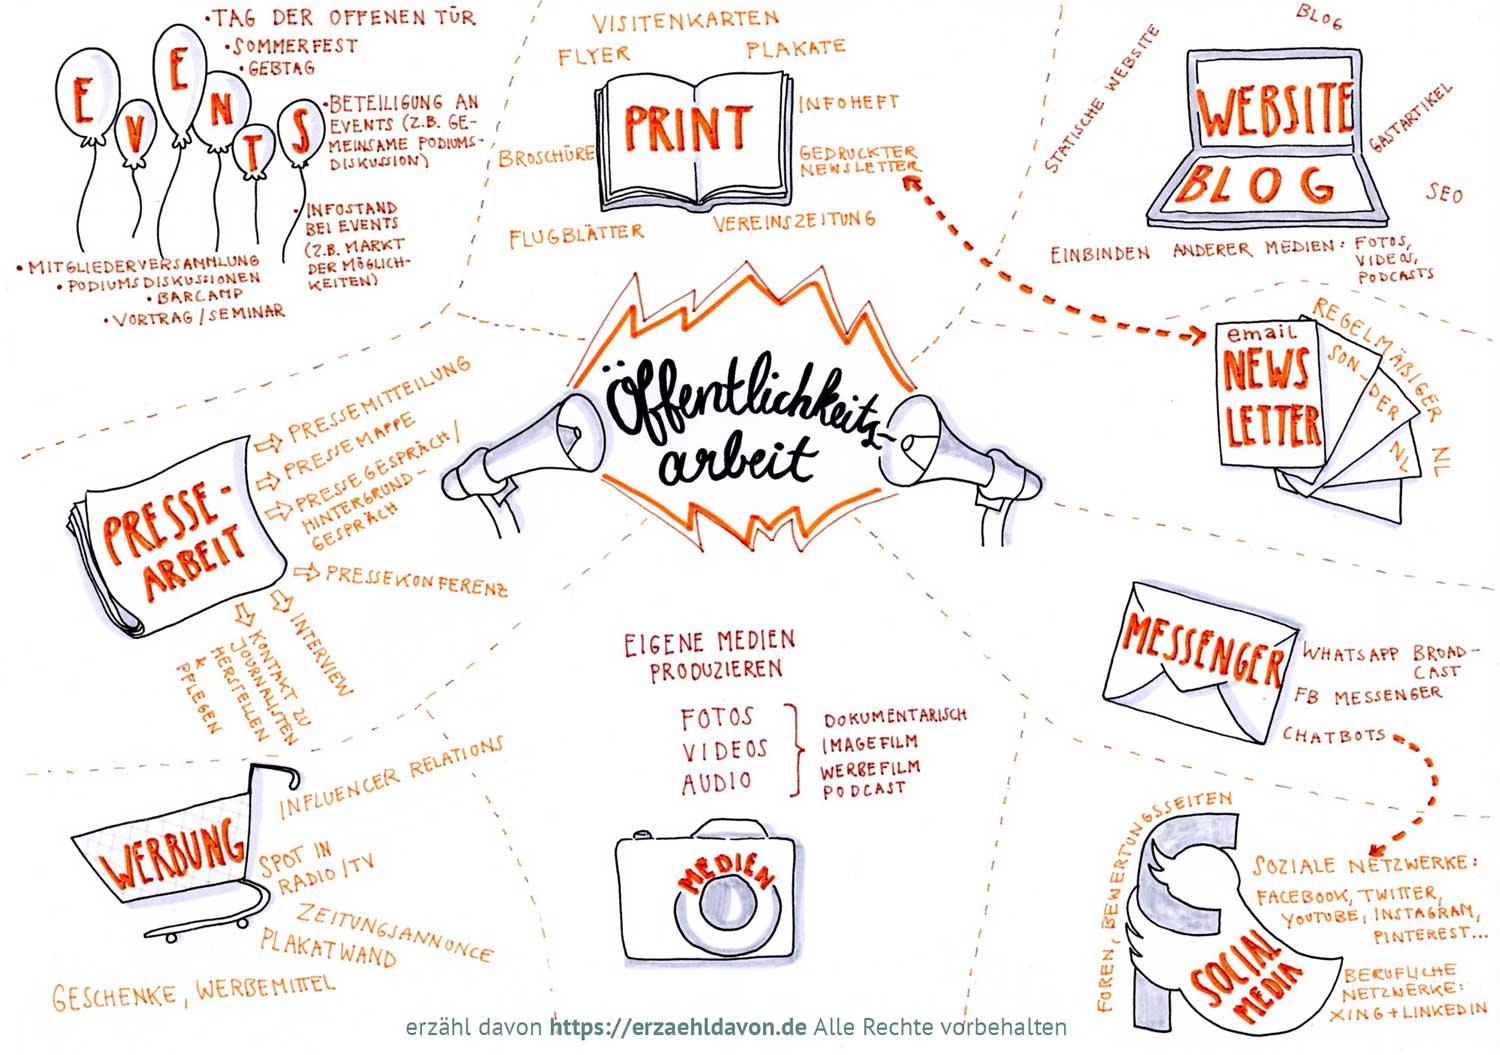 EVENTS
• TAG DER OFFENEN TÜR
• SOMMERFEST
• GEBTAG
• BETEILIGUNG AN
EVENTS (Z.B. GE-
MEINSAME PODIUMS-
DISKUSSION)
• INFOSTAND
BEI EVENTS
(Z.B. MARKT
DER MÖGLICH-
KEITEN)
• MITGLIEDERVERSAMMLUNG
• PODIUMSDISKUSSIONEN
• BARCAMP
• VORTRAG/SEMINAR
VISITENKARTEN
FLYER
PLAKATE
PRINT
INFOHEFT
BROSCHÜRE
GEDRUCKTER
NEWSLETTER
FLUGBLÄTTER
VEREINSZEITUNG
BLOG
STATISCHE WEBSITE
WEBSITE
BLOG
GASTARTIKEL
SEO
EINBINDEN ANDERER MEDIEN: FOTOS,
VIDEOS,
PODCASTS
email
NEWS
LETTER
SON-DER NL
REGELMÄßIGER NL
Öffentlichkeits-
arbeit
PRESSE-
ARBEIT
PRESSEMITTEILUNG
PRESSEMAPPE
PRESSEGESPRÄCH/
HINTERGRUND-
GESPRÄCH
PRESSEKONFERENZ
INTERVIEW
KONTAKT ZU
JOURNALISTEN
HERSTELLEN
&
PFLEGEN
EIGENE MEDIEN
PRODUZIEREN
FOTOS
VIDEOS
AUDIO
DOKUMENTARISCH
IMAGEFILM
WERBEFILM
PODCAST
MEDIEN
MESSENGER
WHATSAPP BROAD-
CAST
FB MESSENGER
CHATBOTS
WERBUNG
INFLUENCER RELATIONS
SPOT IN
RADIO/TV
ZEITUNGSANNONCE
PLAKATWAND
GESCHENKE, WERBEMITTEL
FOREN, BEWERTUNGSSEITEN
SOCIAL
MEDIA
SOZIALE NETZWERKE:
FACEBOOK, TWITTER,
YOUTUBE, INSTAGRAM,
PINTEREST...
BERUFLICHE
NETZWERKE:
XING+LINKEDIN
erzähl davon https://erzaehldavon.de Alle Rechte vorbehalten